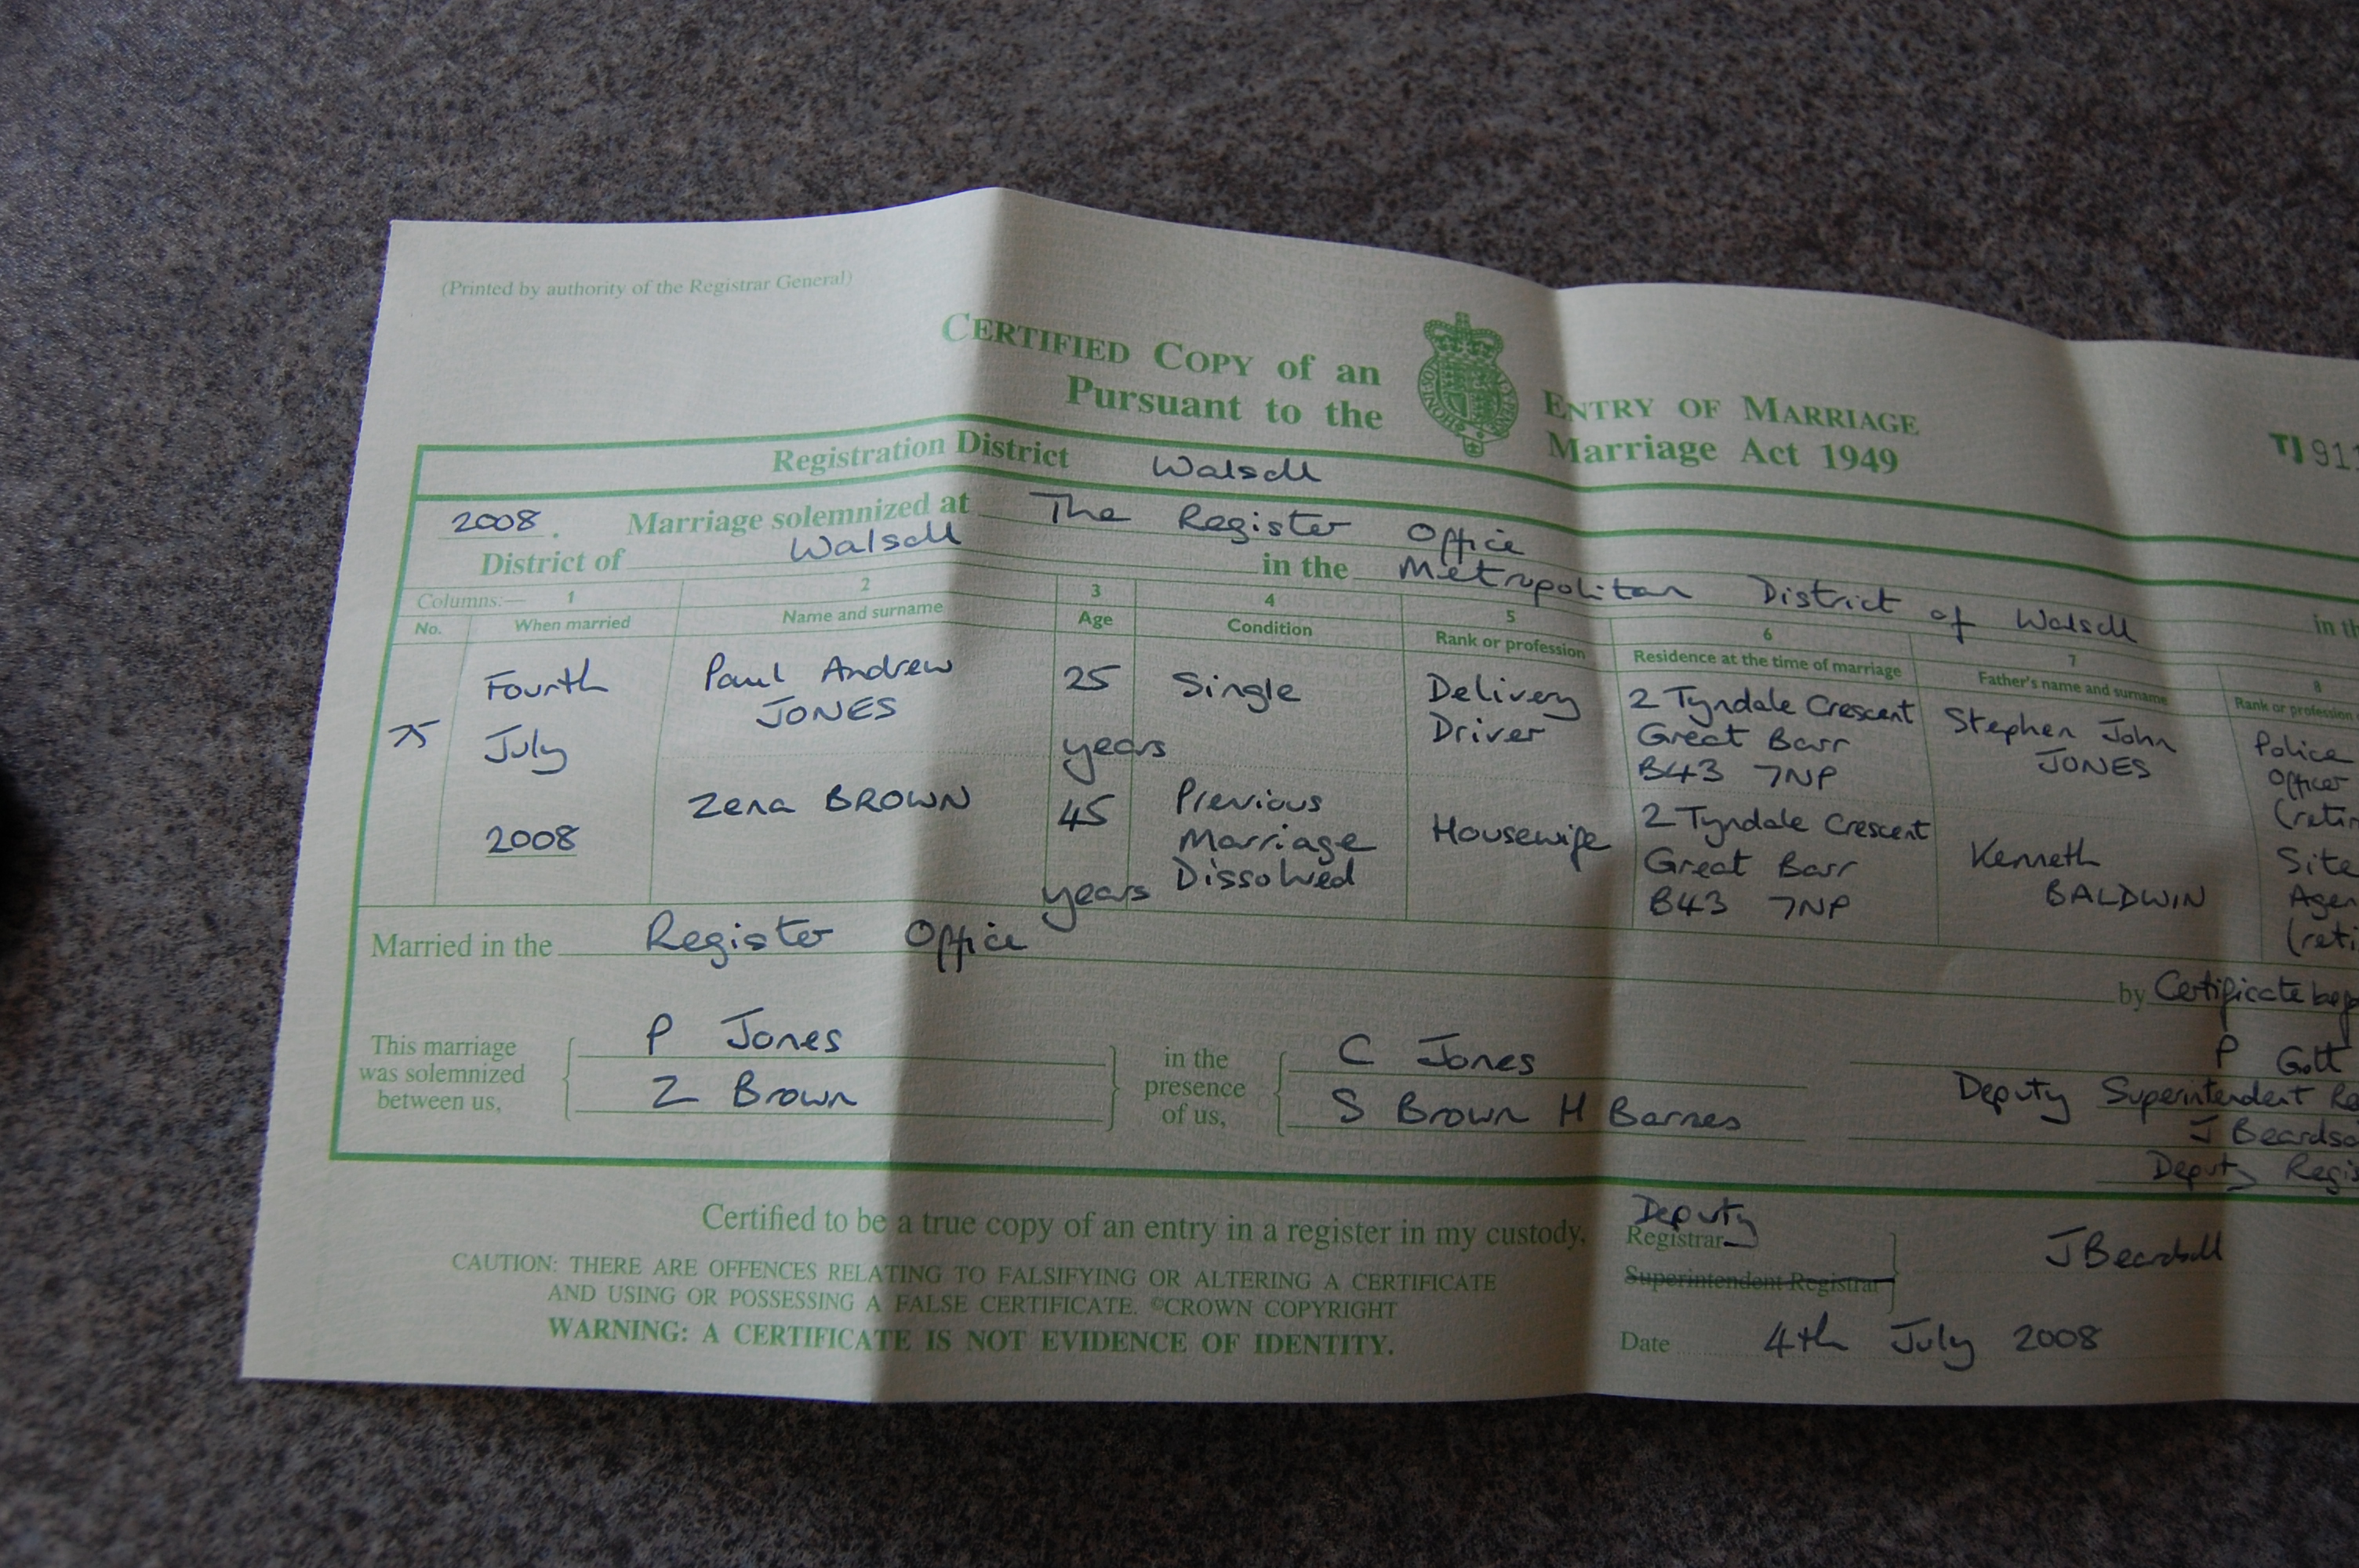 (Printed by authority of the Registrar General)
CERTIFIED COPY of an ENTRY OF MARRIAGE
Pursuant to the Marriage Act 1949
TJ 911
Registration District Walsall
2008. Marriage solemnized at The Register Office
District of Walsall in the Metropolitan District of Walsall in th
Columns:— 1 2 3 4 5 6 7 8
No. When married Name and surname Age Condition Rank or profession Residence at the time of marriage Father's name and surname Rank or profession
75
Fourth
July
2008
Paul Andrew
JONES
25
years
Single
Delivery
Driver
2 Tyndale Crescent
Great Barr
B43 7NP
Stephen John
JONES
Police
Officer
(retir
Zena BROWN
45
years
Previous
Marriage
Dissolved
Housewife
2 Tyndale Crescent
Great Barr
B43 7NP
Kenneth
BALDWIN
Site
Agen
(reti
Married in the Register Office by Certificate
This marriage
was solemnized
between us,
P Jones
Z Brown
in the
presence
of us,
C Jones
S Brown H Barnes
P Gott
Deputy Superintendent Re
J Beardsa
Deputy Regis
Certified to be a true copy of an entry in a register in my custody.
Deputy
Registrar
Superintendent Registrar
J Beardsall
CAUTION: THERE ARE OFFENCES RELATING TO FALSIFYING OR ALTERING A CERTIFICATE
AND USING OR POSSESSING A FALSE CERTIFICATE. ©CROWN COPYRIGHT
WARNING: A CERTIFICATE IS NOT EVIDENCE OF IDENTITY.
Date 4th July 2008